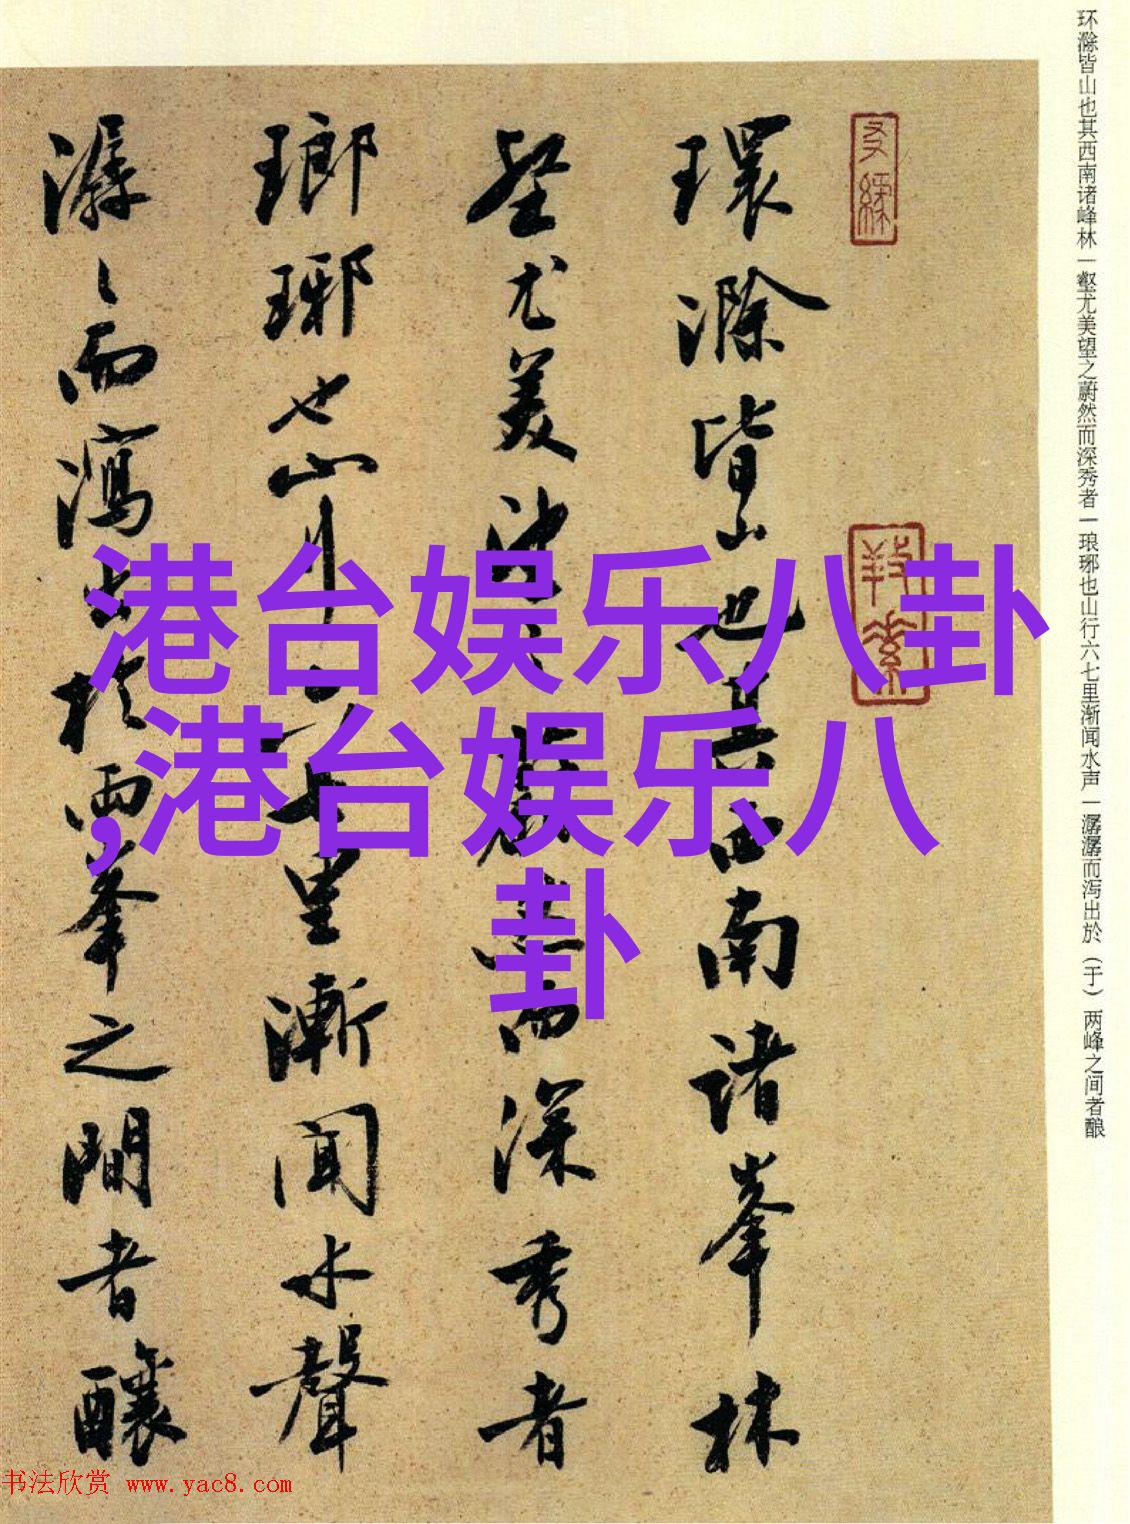 环滁皆山也其西南诸峰林一壑尤美望之蔚然而深秀者一琅琊也山行六七里渐闻水声一潺潺而泻出於（于）两峰之间者酿
環滁皆山也其西南諸峯林
壑尤美望之蔚然而深秀者
瑯琊也山行六七里漸聞水聲
潺〻而瀉出於兩峯之間者釀
港台娱乐八卦
,港台娱乐八
卦
书法欣赏 www.yac8.com